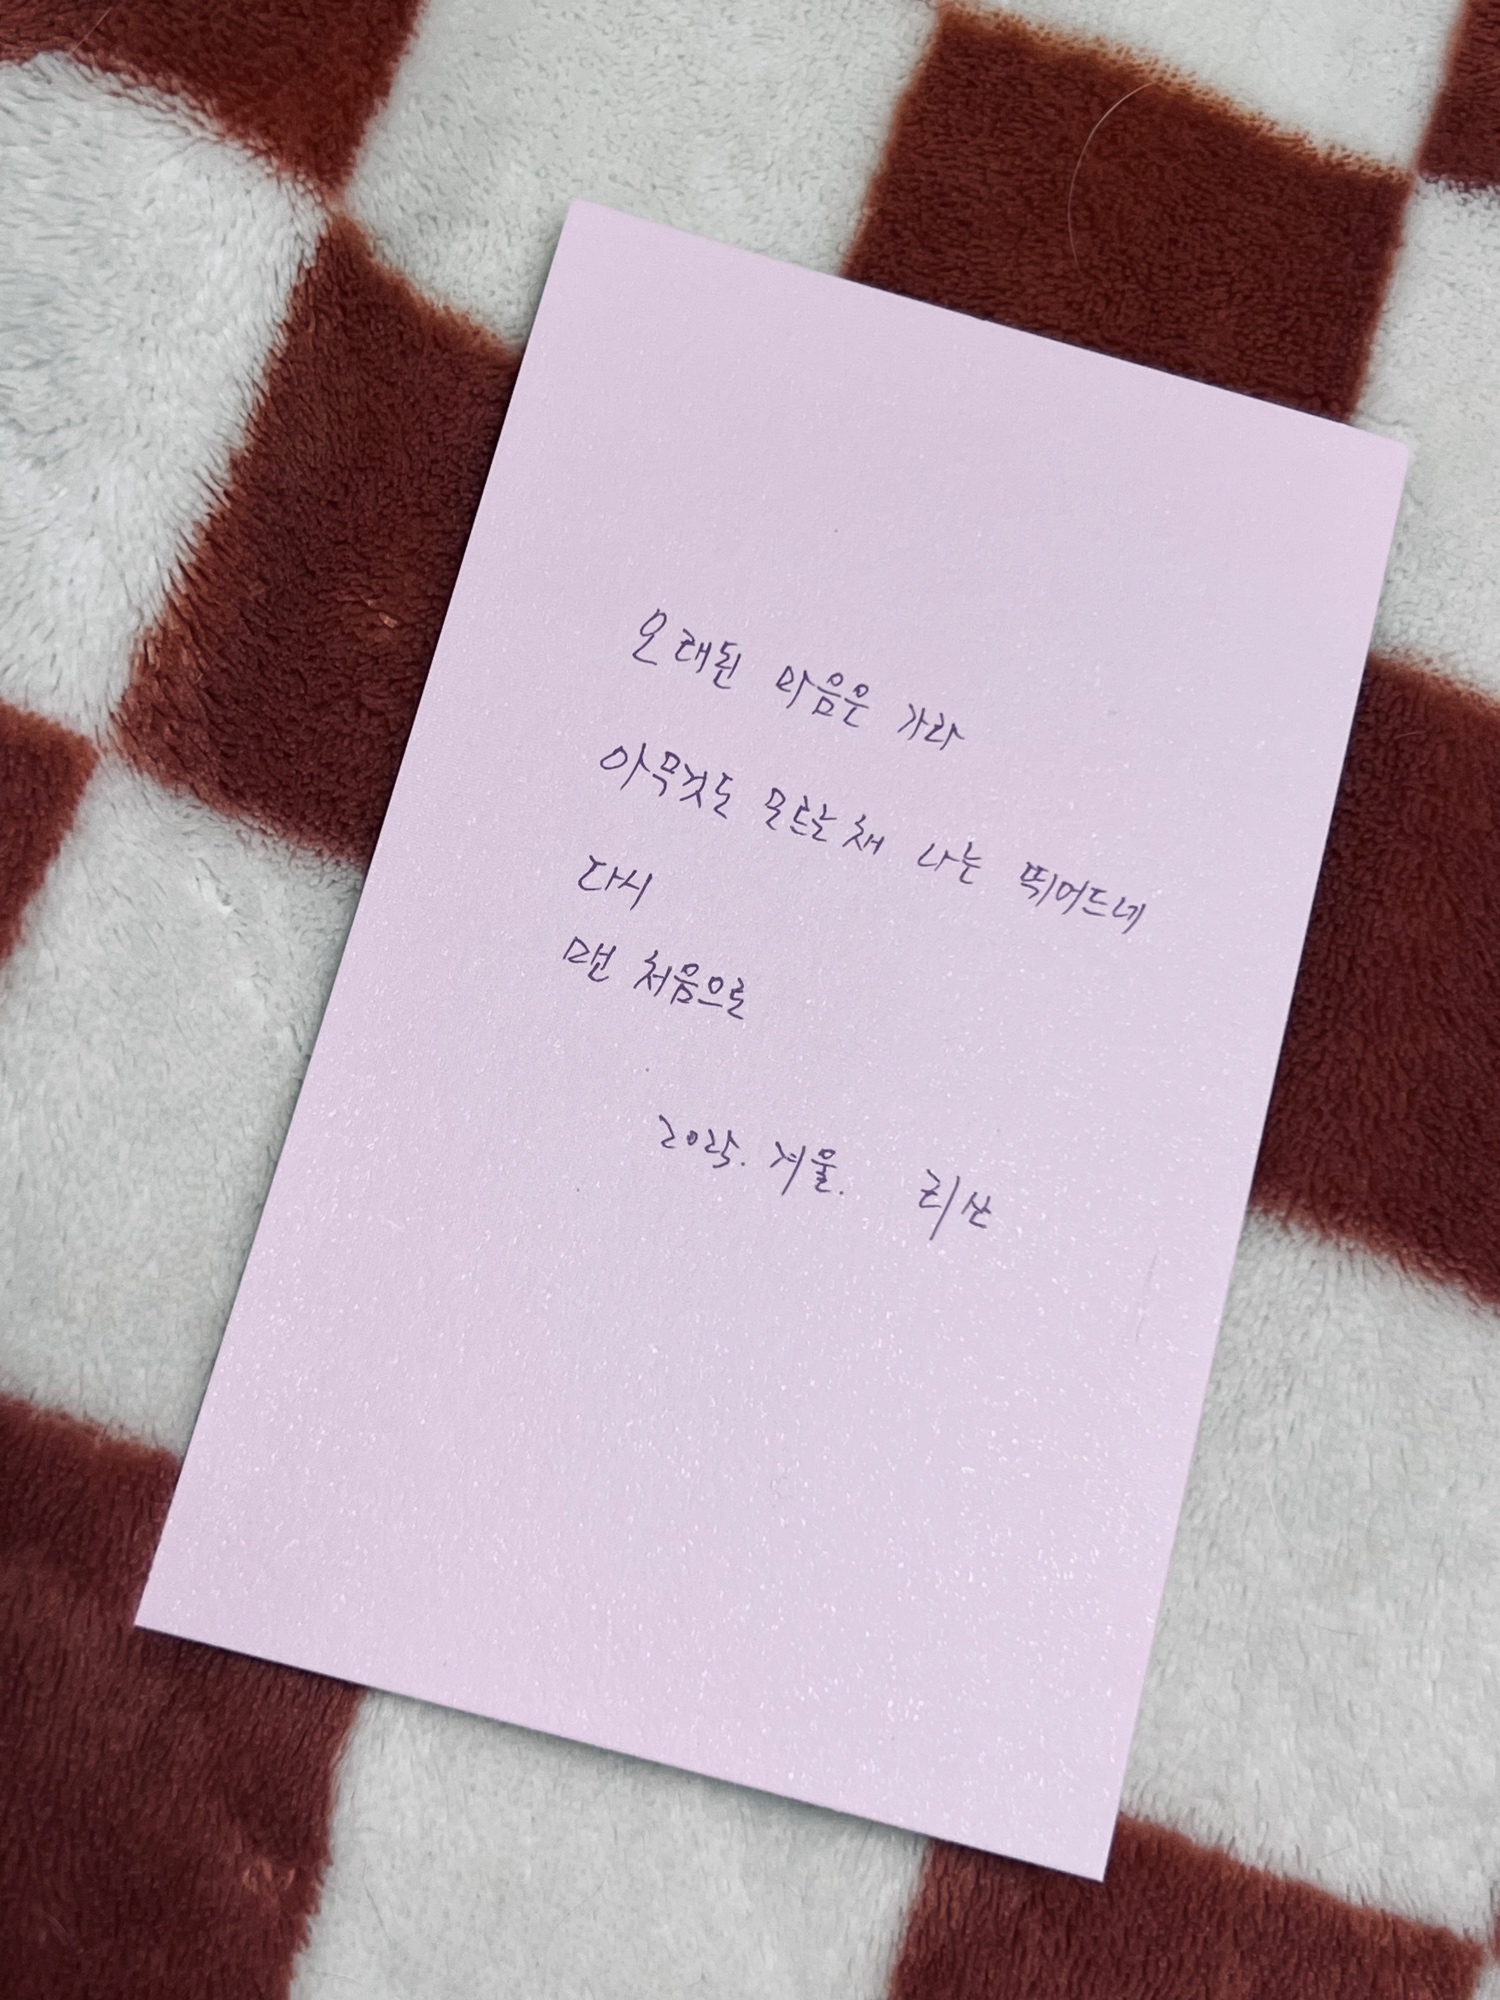 오래된 마음은 가라
아무것도 모르는 채 나는 뛰어드네
다시
맨 처음으로
2025. 겨울. 리산